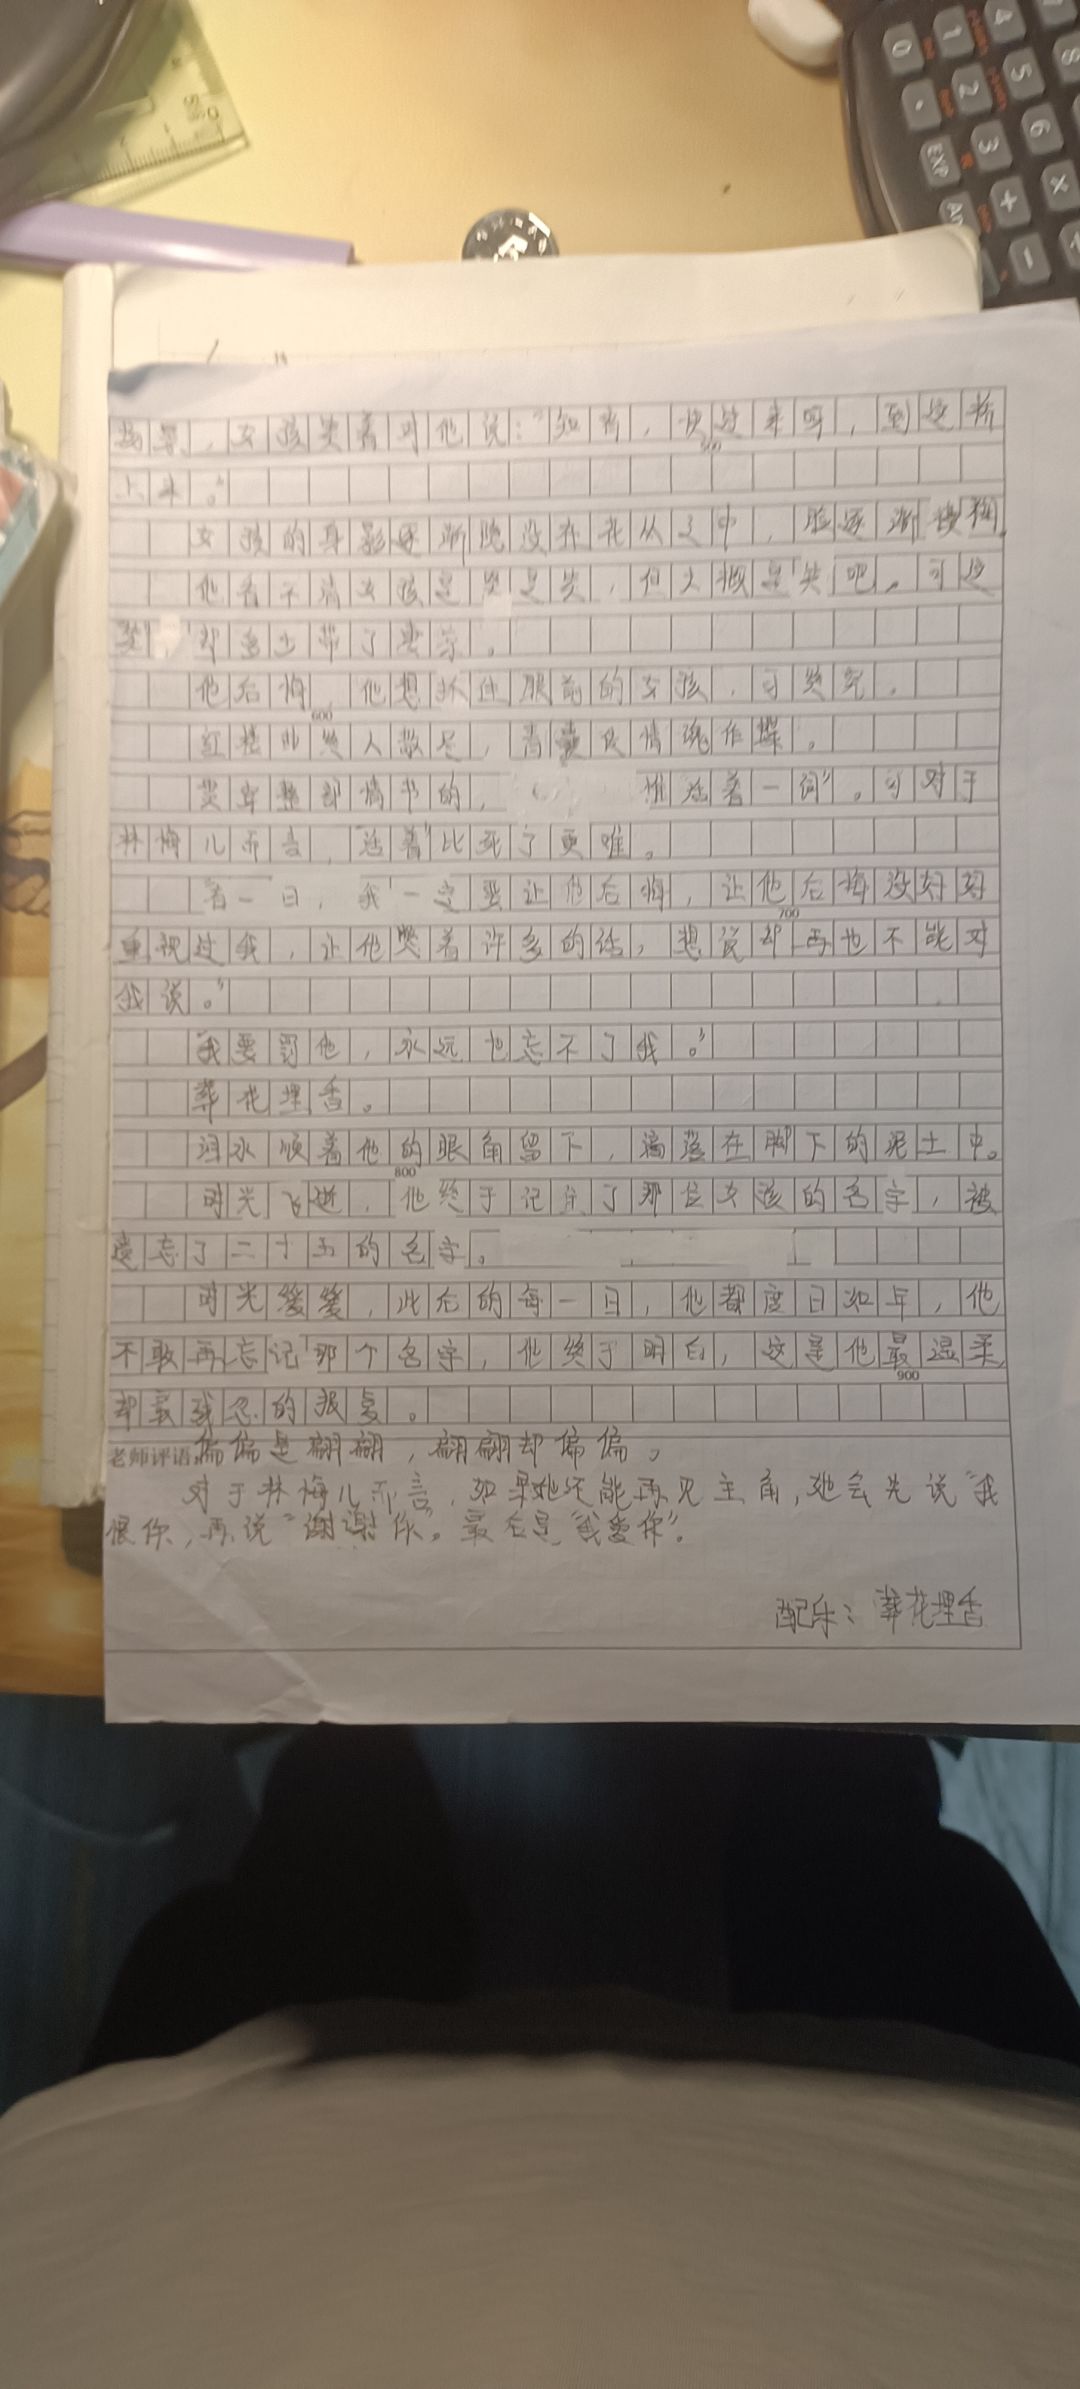 女孩笑着对他说：“知有，快过来呀，到这桥
上来。”
女孩的身影逐渐隐没在花丛之中，脸逐渐模糊
他看不清女孩是哭是笑，但大概是笑吧。可这
笑却多少带了
他后悔 他想抓住眼前的女孩，可终究。
红楼曲终人散尽，青 作蝶。
贯穿整部情节的， 惟活着一词”。可对于
林悔儿而言，“活着”比死了更难。
若一日，我一定要让他后悔，让他后悔没好好
重视过我，让他哭着许多的话，想说却再也不能对
我说。”
“我要罚他，永远也忘不了我。”
葬花埋香。
泪水顺着他的眼角留下，滴落在脚下的泥土中。
时光飞逝，他终于记住了那位女孩的名字，被
遗忘了二十五的名字。
时光缓缓，此后的每一日，他都度日如年，他
不敢再忘记那个名字，他终于明白，这是他最温柔
却最残忍的报复。
老师评语：偏偏是翩翩，翩翩却偏偏。
对于林悔儿而言，如果她还能再见主角，她会先说“我
恨你，再说“谢谢你”。最后是“我爱你”。
配乐：葬花埋香
500
600
700
800
900
0
1
4
8
.
2
5
EXP
3
6
+
×
-